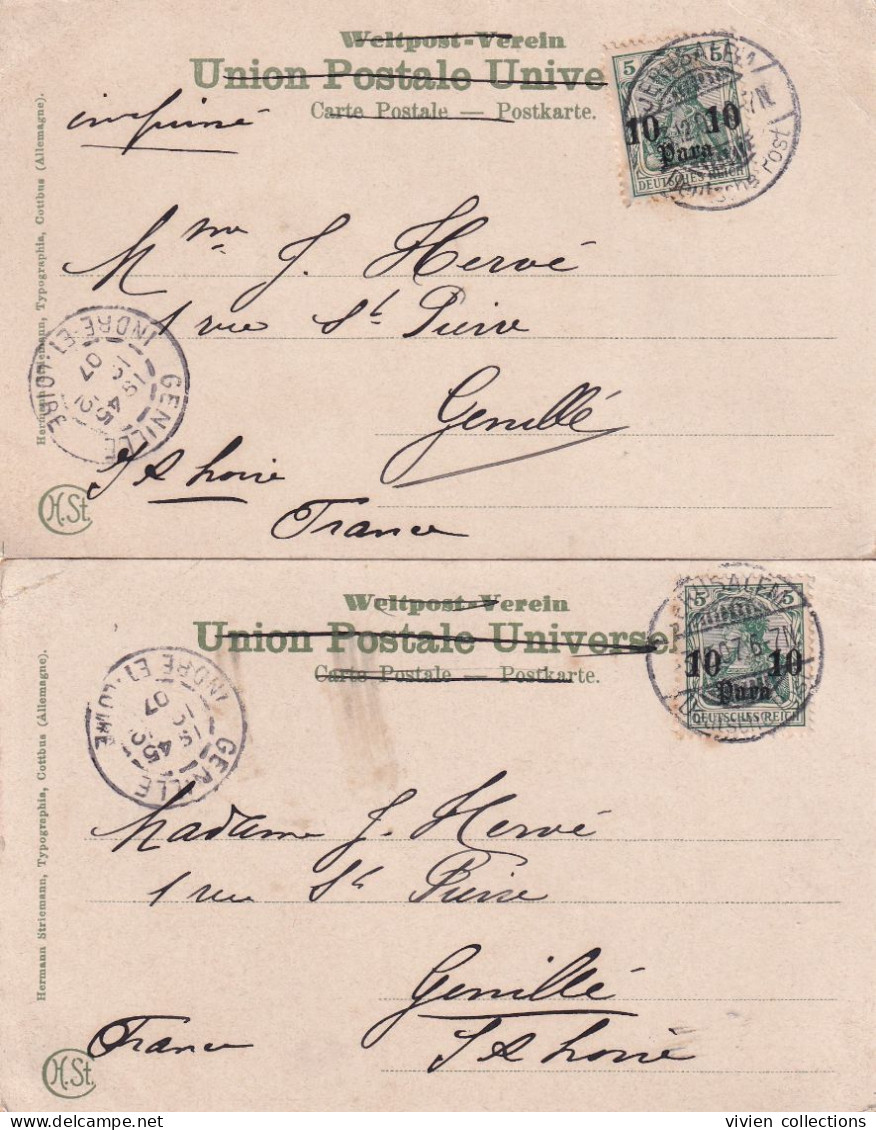 Weltpost-Verein
Union Postale Unive
Carte Postale — Postkarte.
imprimé
5 5
10 10
Para
DEUTSCHES REICH
JERUSALEM
Deutsche Post
Hermann Striemann, Typographia, Cottbus (Allemagne).
Mme J. Hervé
1 rue St Pierre
Genillé
I & Loire
France
GENILLE
INDRE-ET-
07
H.St.
Weltpost-Verein
Union Postale Universel
Carte Postale — Postkarte.
5 5
10 10
Para
DEUTSCHES REICH
USALEM
07 6-7N
Deutsche
Hermann Striemann, Typographia, Cottbus (Allemagne).
GENILLE
INDRE-ET-LOIRE
07
Madame J. Hervé
1 rue St Pierre
Genillé
France
I & Loire
H.St.
vivien collections